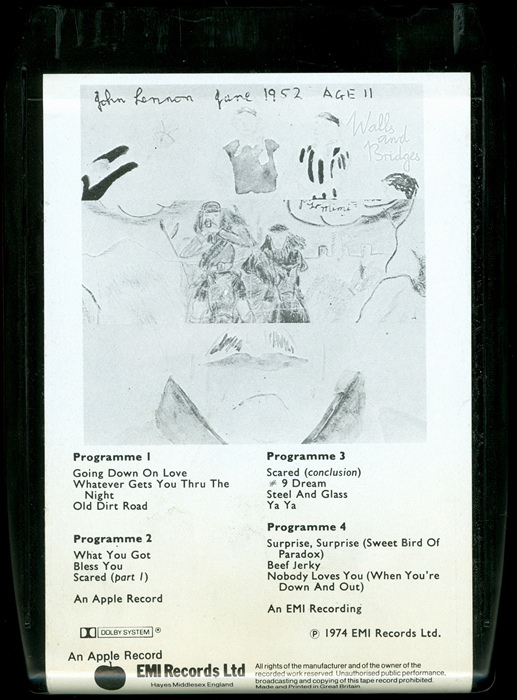 John Lennon June 1952 AGE 11
Walls
and
Bridges
Programme 1
Going Down On Love
Whatever Gets You Thru The
Night
Old Dirt Road
Programme 2
What You Got
Bless You
Scared (part 1)
An Apple Record
DOLBY SYSTEM ®
Programme 3
Scared (conclusion)
# 9 Dream
Steel And Glass
Ya Ya
Programme 4
Surprise, Surprise (Sweet Bird Of
Paradox)
Beef Jerky
Nobody Loves You (When You're
Down And Out)
An EMI Recording
℗ 1974 EMI Records Ltd.
An Apple Record
EMI Records Ltd
Hayes Middlesex England
All rights of the manufacturer and of the owner of the
recorded work reserved. Unauthorised public performance,
broadcasting and copying of this tape record prohibited.
Made and Printed in Great Britain